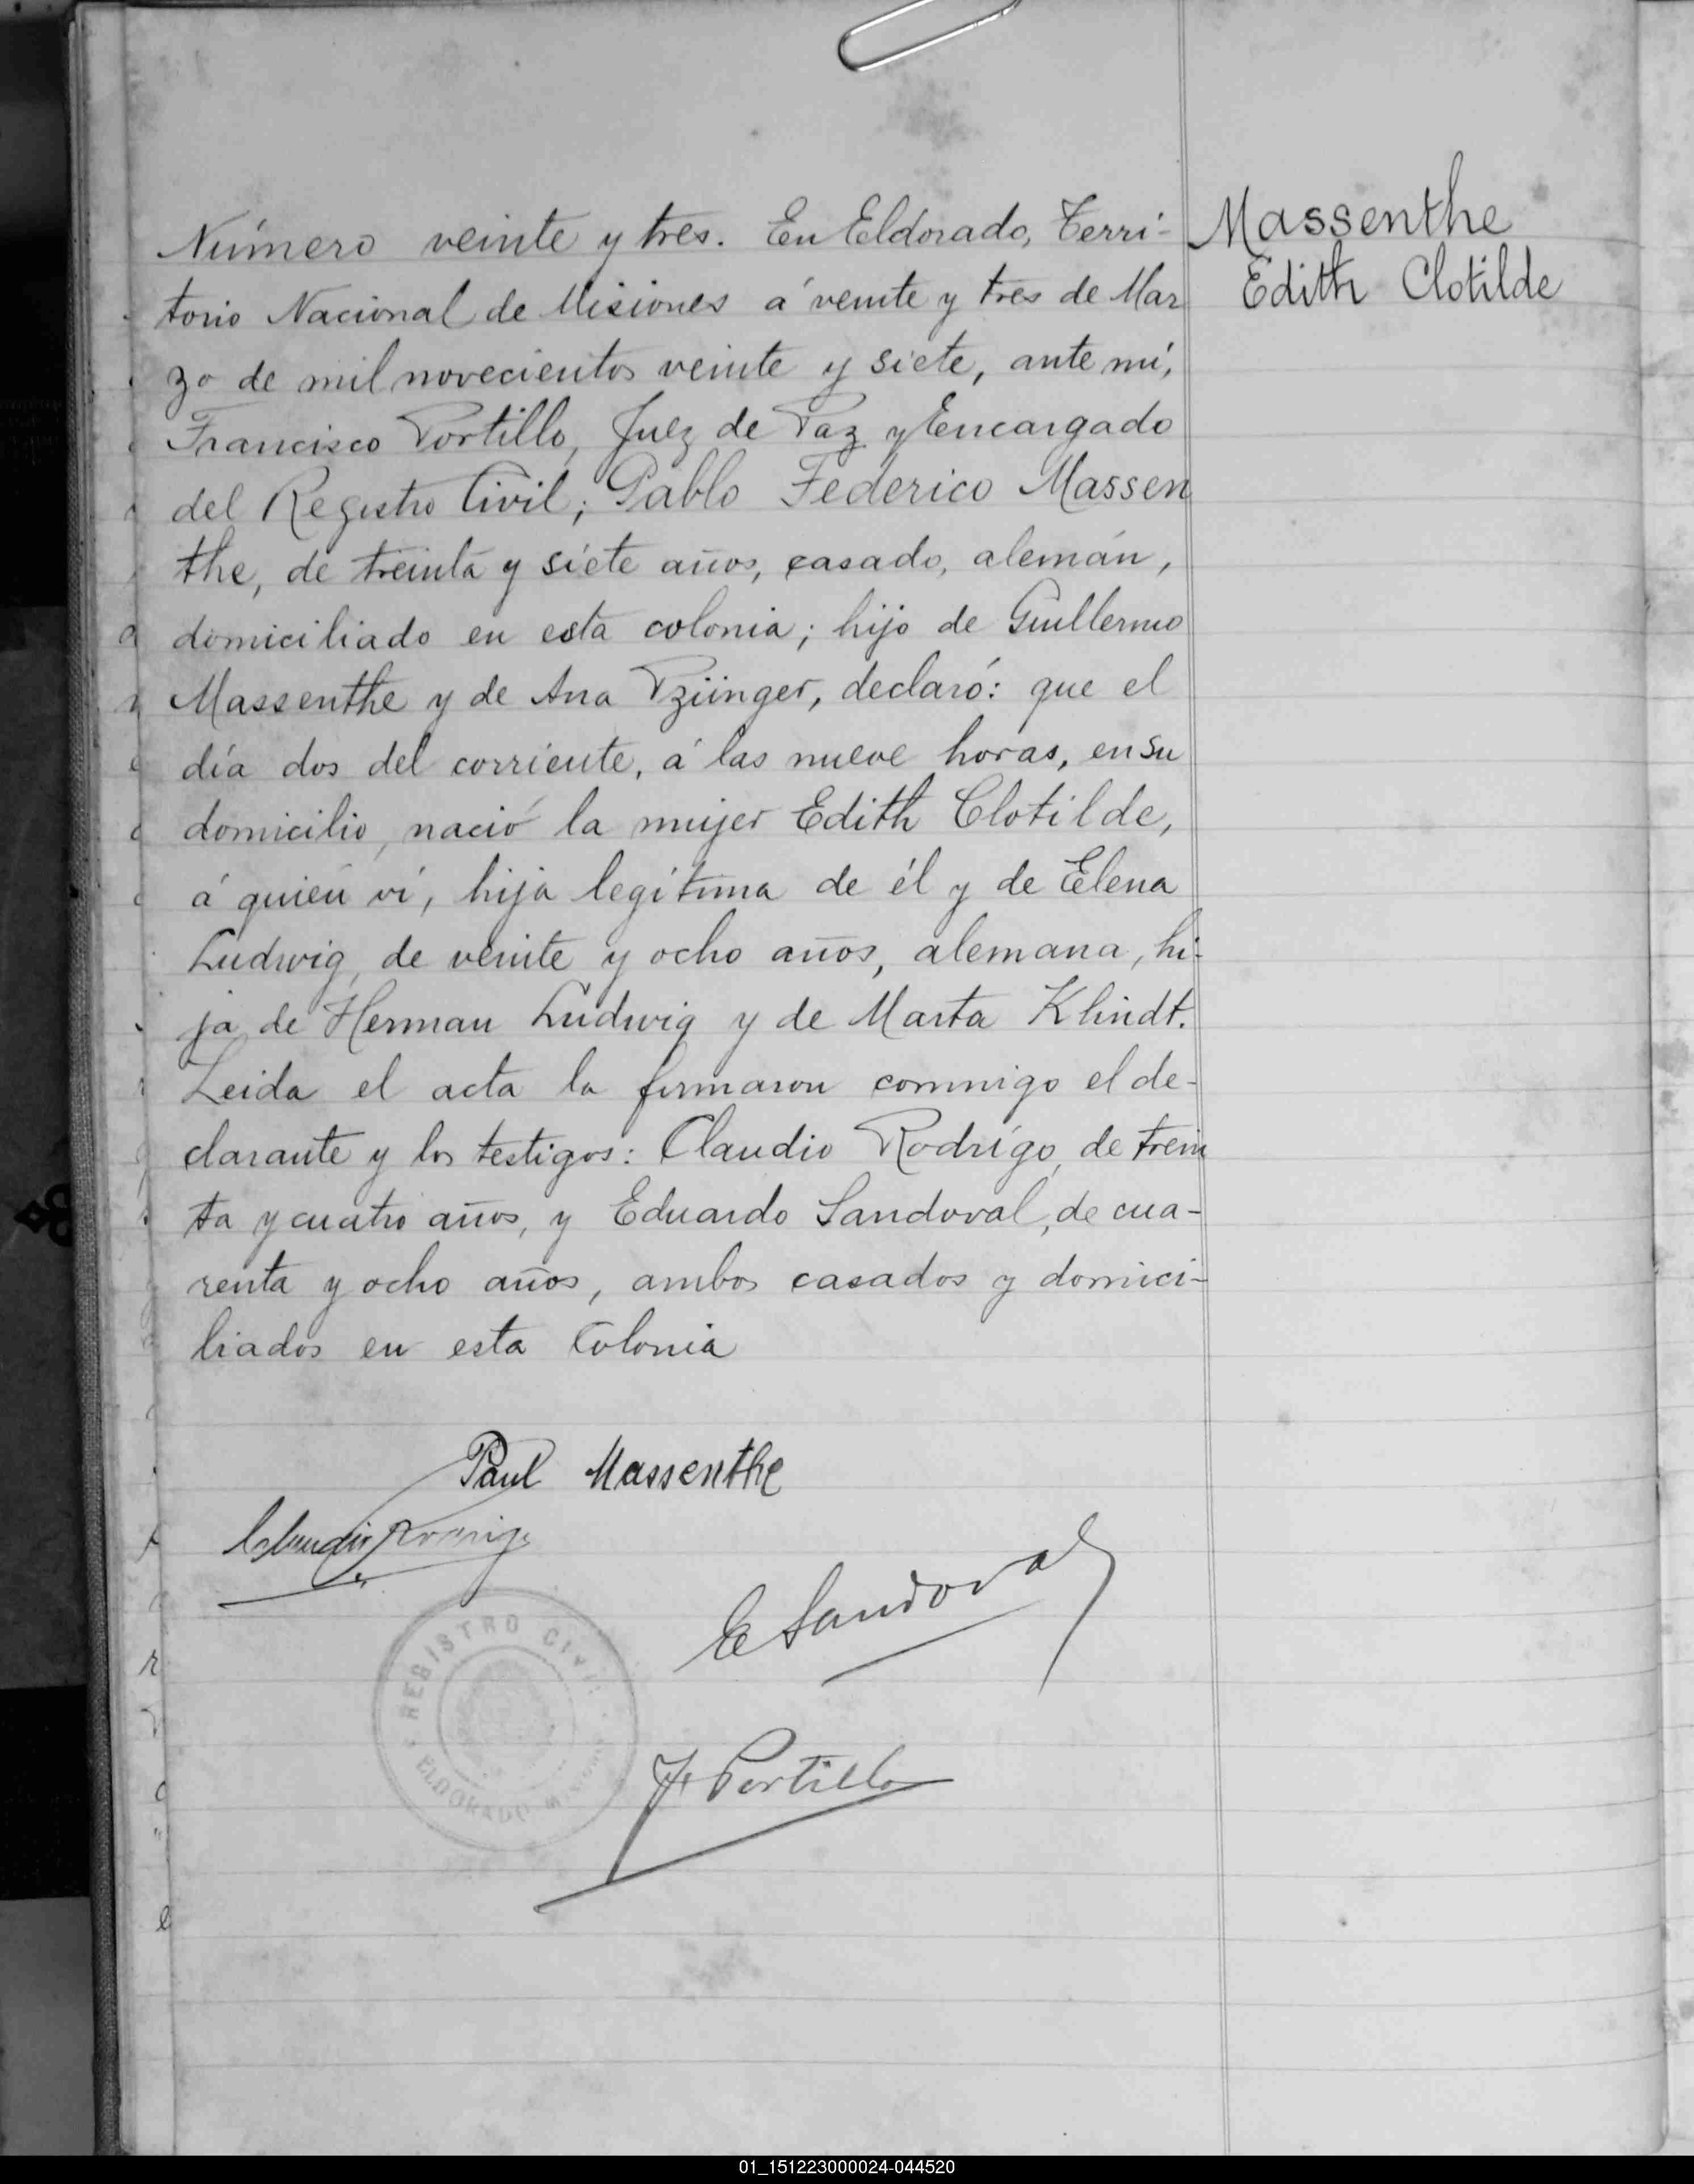 Massenthe
Edith Clotilde
Número veinte y tres. En Eldorado, Terri-
torio Nacional de Misiones á veinte y tres de Mar
zo de mil novecientos veinte y siete, ante mí,
Francisco Portillo, Juez de Paz y Encargado
del Registro Civil; Pablo Federico Massen
the, de treinta y siete años, casado, alemán,
domiciliado en esta colonia; hijo de Guillermo
Massenthe y de Ana Pziinger, declaró: que el
día dos del corriente, á las nueve horas, en su
domicilio, nació la mujer Edith Clotilde,
á quien ví, hija legítima de él y de Elena
Ludwig, de veinte y ocho años, alemana, hi-
ja de Herman Ludwig y de Marta Klindt.
Leida el acta la firmaron conmigo el de-
clarante y los testigos: Claudio Rodrígo, de trein
ta y cuatro años, y Eduardo Sandoval, de cua-
renta y ocho años, ambos casados y domici-
liados en esta Colonia
Paul Massenthe
Claudio Rodrigo
E Sandoval
REGISTRO CIVIL
ELDORADO MISIONES
F. Portillo
01_151223000024-044520